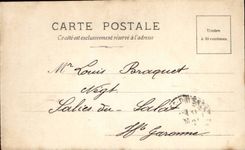 CARTE POSTALE
Ce côté est exclusivement réservé à l'adresse
Timbre
à 10 centimes
Mr Louis Braquet
Negt
Salies-du-Salat
Hte Garonne